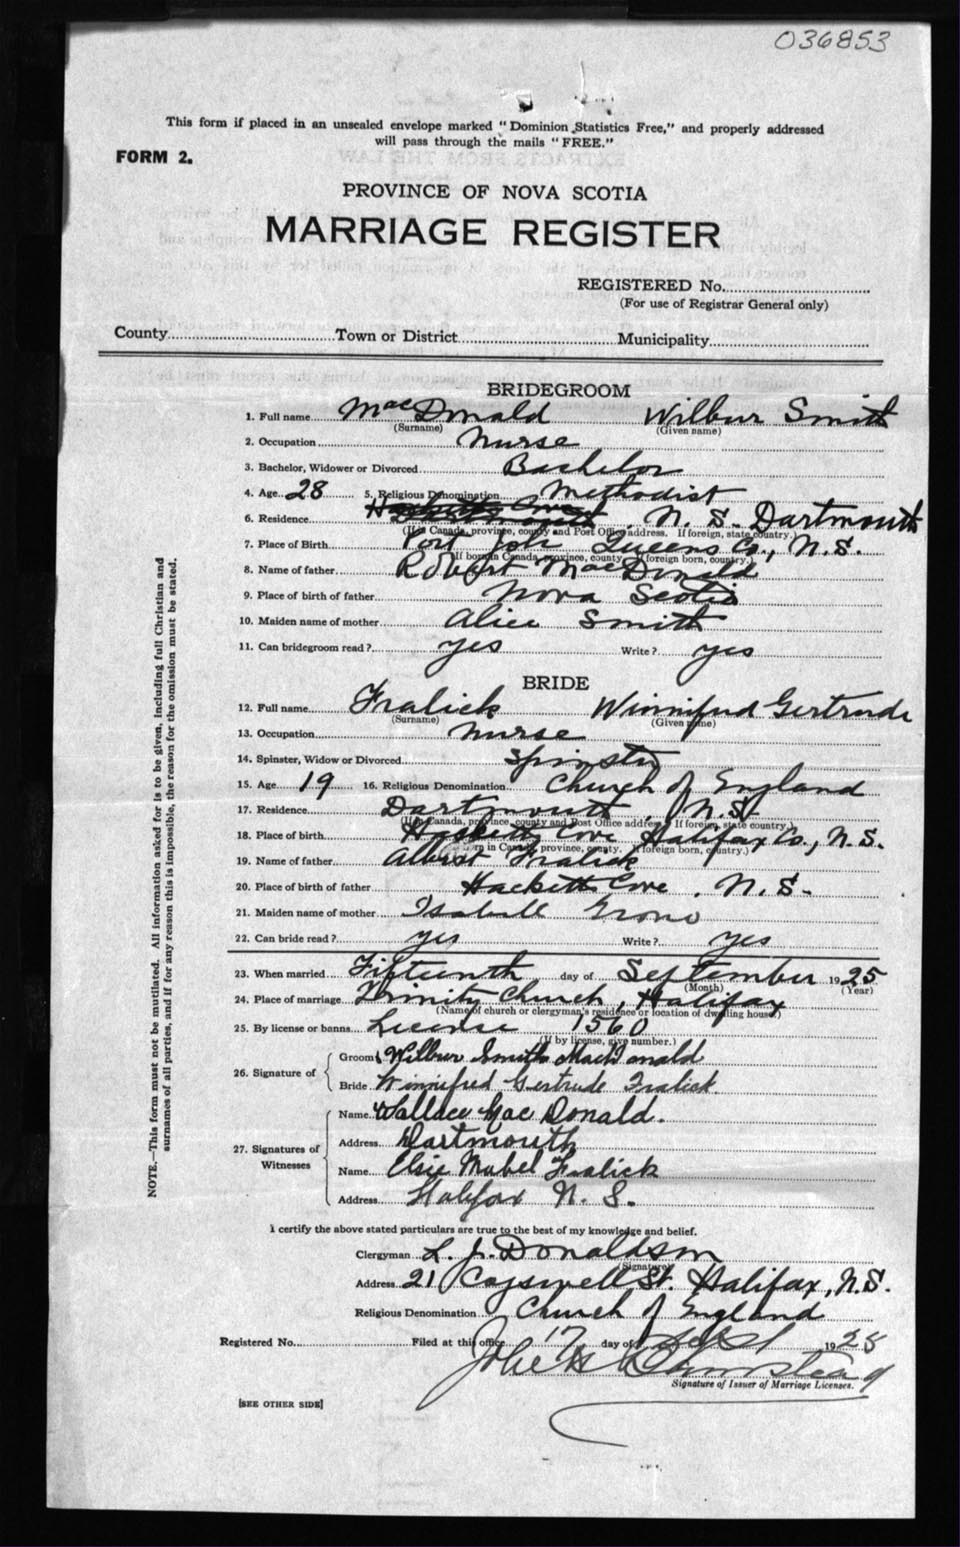 036853
This form if placed in an unsealed envelope marked "Dominion Statistics Free," and properly addressed
will pass through the mails "FREE."
FORM 2.
PROVINCE OF NOVA SCOTIA
MARRIAGE REGISTER
REGISTERED No.
(For use of Registrar General only)
County Town or District Municipality
BRIDEGROOM
1. Full name MacDonald Wilbur Smith
(Surname) (Given name)
2. Occupation Nurse
3. Bachelor, Widower or Divorced Bachelor
4. Age 28 5. Religious Denomination Methodist
Hacketts Cove
6. Residence Dartmouth, N. S. Dartmouth
(If in Canada, province, county and Post Office address. If foreign, state country.)
7. Place of Birth Port Joli Queens Co., N.S.
(If born in Canada, province, county. If foreign born, country.)
8. Name of father Robert MacDonald
9. Place of birth of father Nova Scotia
10. Maiden name of mother Alice Smith
11. Can bridegroom read? yes Write? yes
BRIDE
12. Full name Fralick Winnifred Gertrude
(Surname) (Given name)
13. Occupation Nurse
14. Spinster, Widow or Divorced Spinster
15. Age 19 16. Religious Denomination Church of England
17. Residence Dartmouth, N.S.
(If in Canada, province, county and Post Office address. If foreign, state country.)
18. Place of birth Hacketts Cove Halifax Co., N.S.
(If born in Canada, province, county. If foreign born, country.)
19. Name of father Albert Fralick
20. Place of birth of father Hacketts Cove, N.S.
21. Maiden name of mother Isabell Grono
22. Can bride read? yes Write? yes
23. When married Fifteenth day of September 1925
(Month) (Year)
24. Place of marriage Trinity Church, Halifax
(Name of church or clergyman's residence or location of dwelling house)
25. By license or banns License 1560
(If by license, give number.)
26. Signature of
Groom Wilbur Smith MacDonald
Bride Winnifred Gertrude Fralick
27. Signatures of Witnesses
Name Wallace MacDonald.
Address Dartmouth
Name Elsie Mabel Fralick
Address Halifax N. S.
I certify the above stated particulars are true to the best of my knowledge and belief.
Clergyman L. J. Donaldson
(Signature)
Address 21 Cogswell St. Halifax, N.S.
Religious Denomination Church of England
Registered No. Filed at this office 17 day of Sept 1925
Signature of Issuer of Marriage Licenses.
[SEE OTHER SIDE]
NOTE.—This form must not be mutilated. All information asked for is to be given, including full Christian and
surnames of all parties, and if for any reason this is impossible, the reason for the omission must be stated.